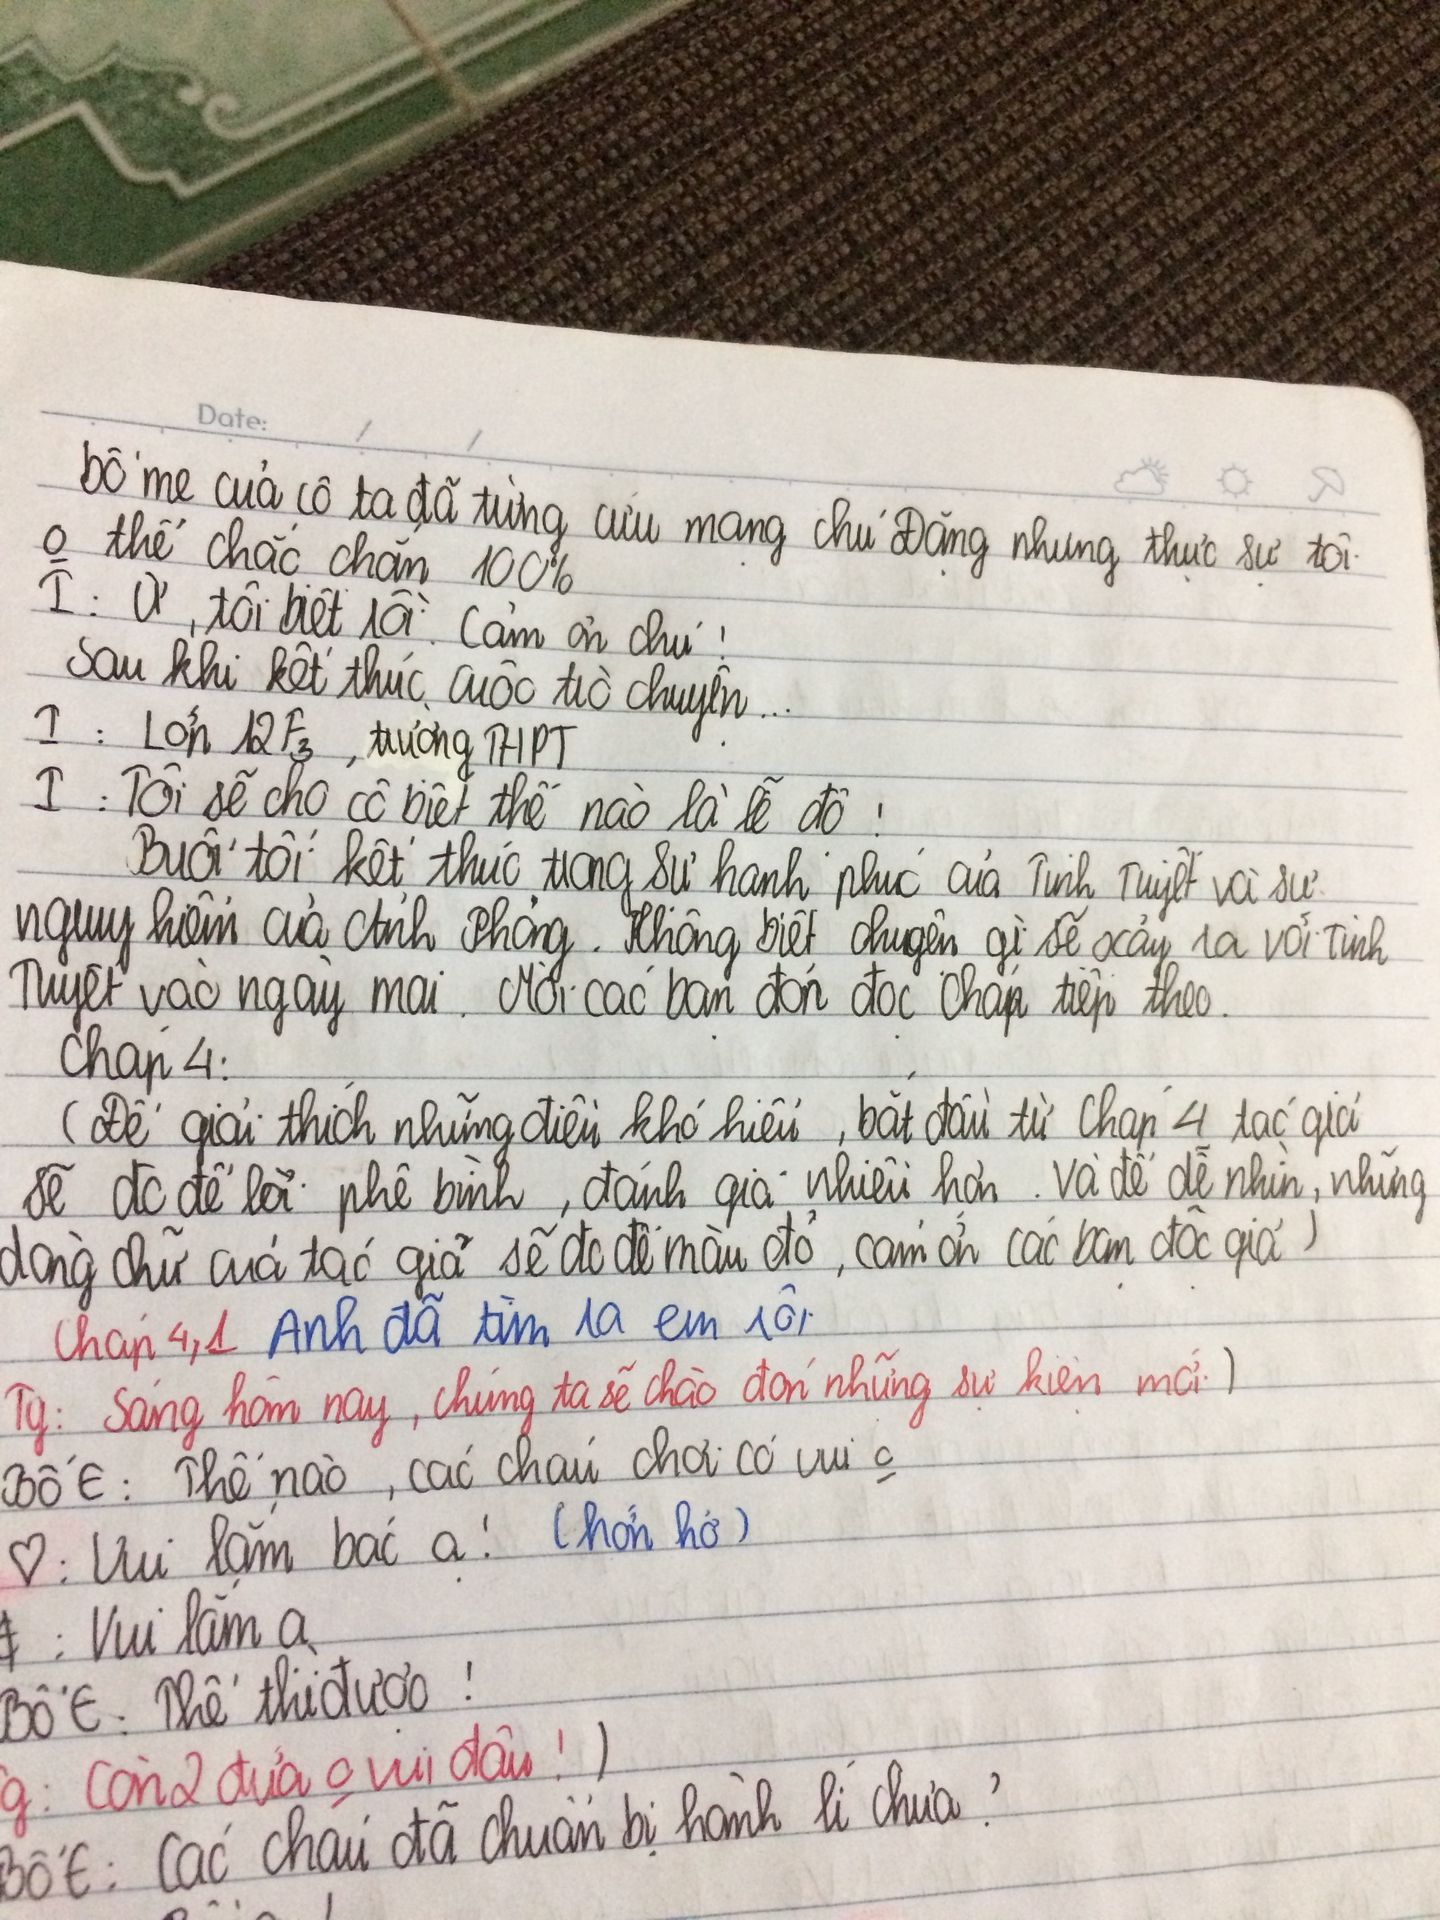 Date: / /
bố mẹ của cô ta đã từng cứu mạng chú Đặng nhưng thực sự tôi
o thể chắc chắn 100%
I : Ừ, tôi biết rồi. Cảm ơn chú !
Sau khi kết thúc cuộc trò chuyện...
I : Lớn 12F3, trường THPT
I : Tôi sẽ cho cô biết thế nào là lễ độ !
Buổi tối kết thúc trong sự hạnh phúc của Tinh Tuyết và sự
nguy hiểm của Anh Phong. Không biết chuyện gì sẽ xảy ra với Tinh
Tuyết vào ngày mai. Mời các bạn đón đọc Chap tiếp theo.
Chap 4:
(Để giải thích những điều khó hiểu, bắt đầu từ Chap 4 tác giả
sẽ đc để lời phê bình, đánh giá nhiều hơn. Và để dễ nhìn, những
dòng chữ của tác giả sẽ đc để màu đỏ, cảm ơn các bạn độc giả)
Chap 4,1 Anh đã tìm ra em rồi
Tg: Sáng hôm nay, chúng ta sẽ chào đón những sự kiện mới)
Bố E: Thế nào, các cháu chơi có vui o
♡: Vui lắm bác ạ! (hớn hở)
: Vui lắm ạ
Bố E: Thế thì được !
g: Còn 2 đứa o vui đâu !)
Bố E: Các cháu đã chuẩn bị hành lí chưa?